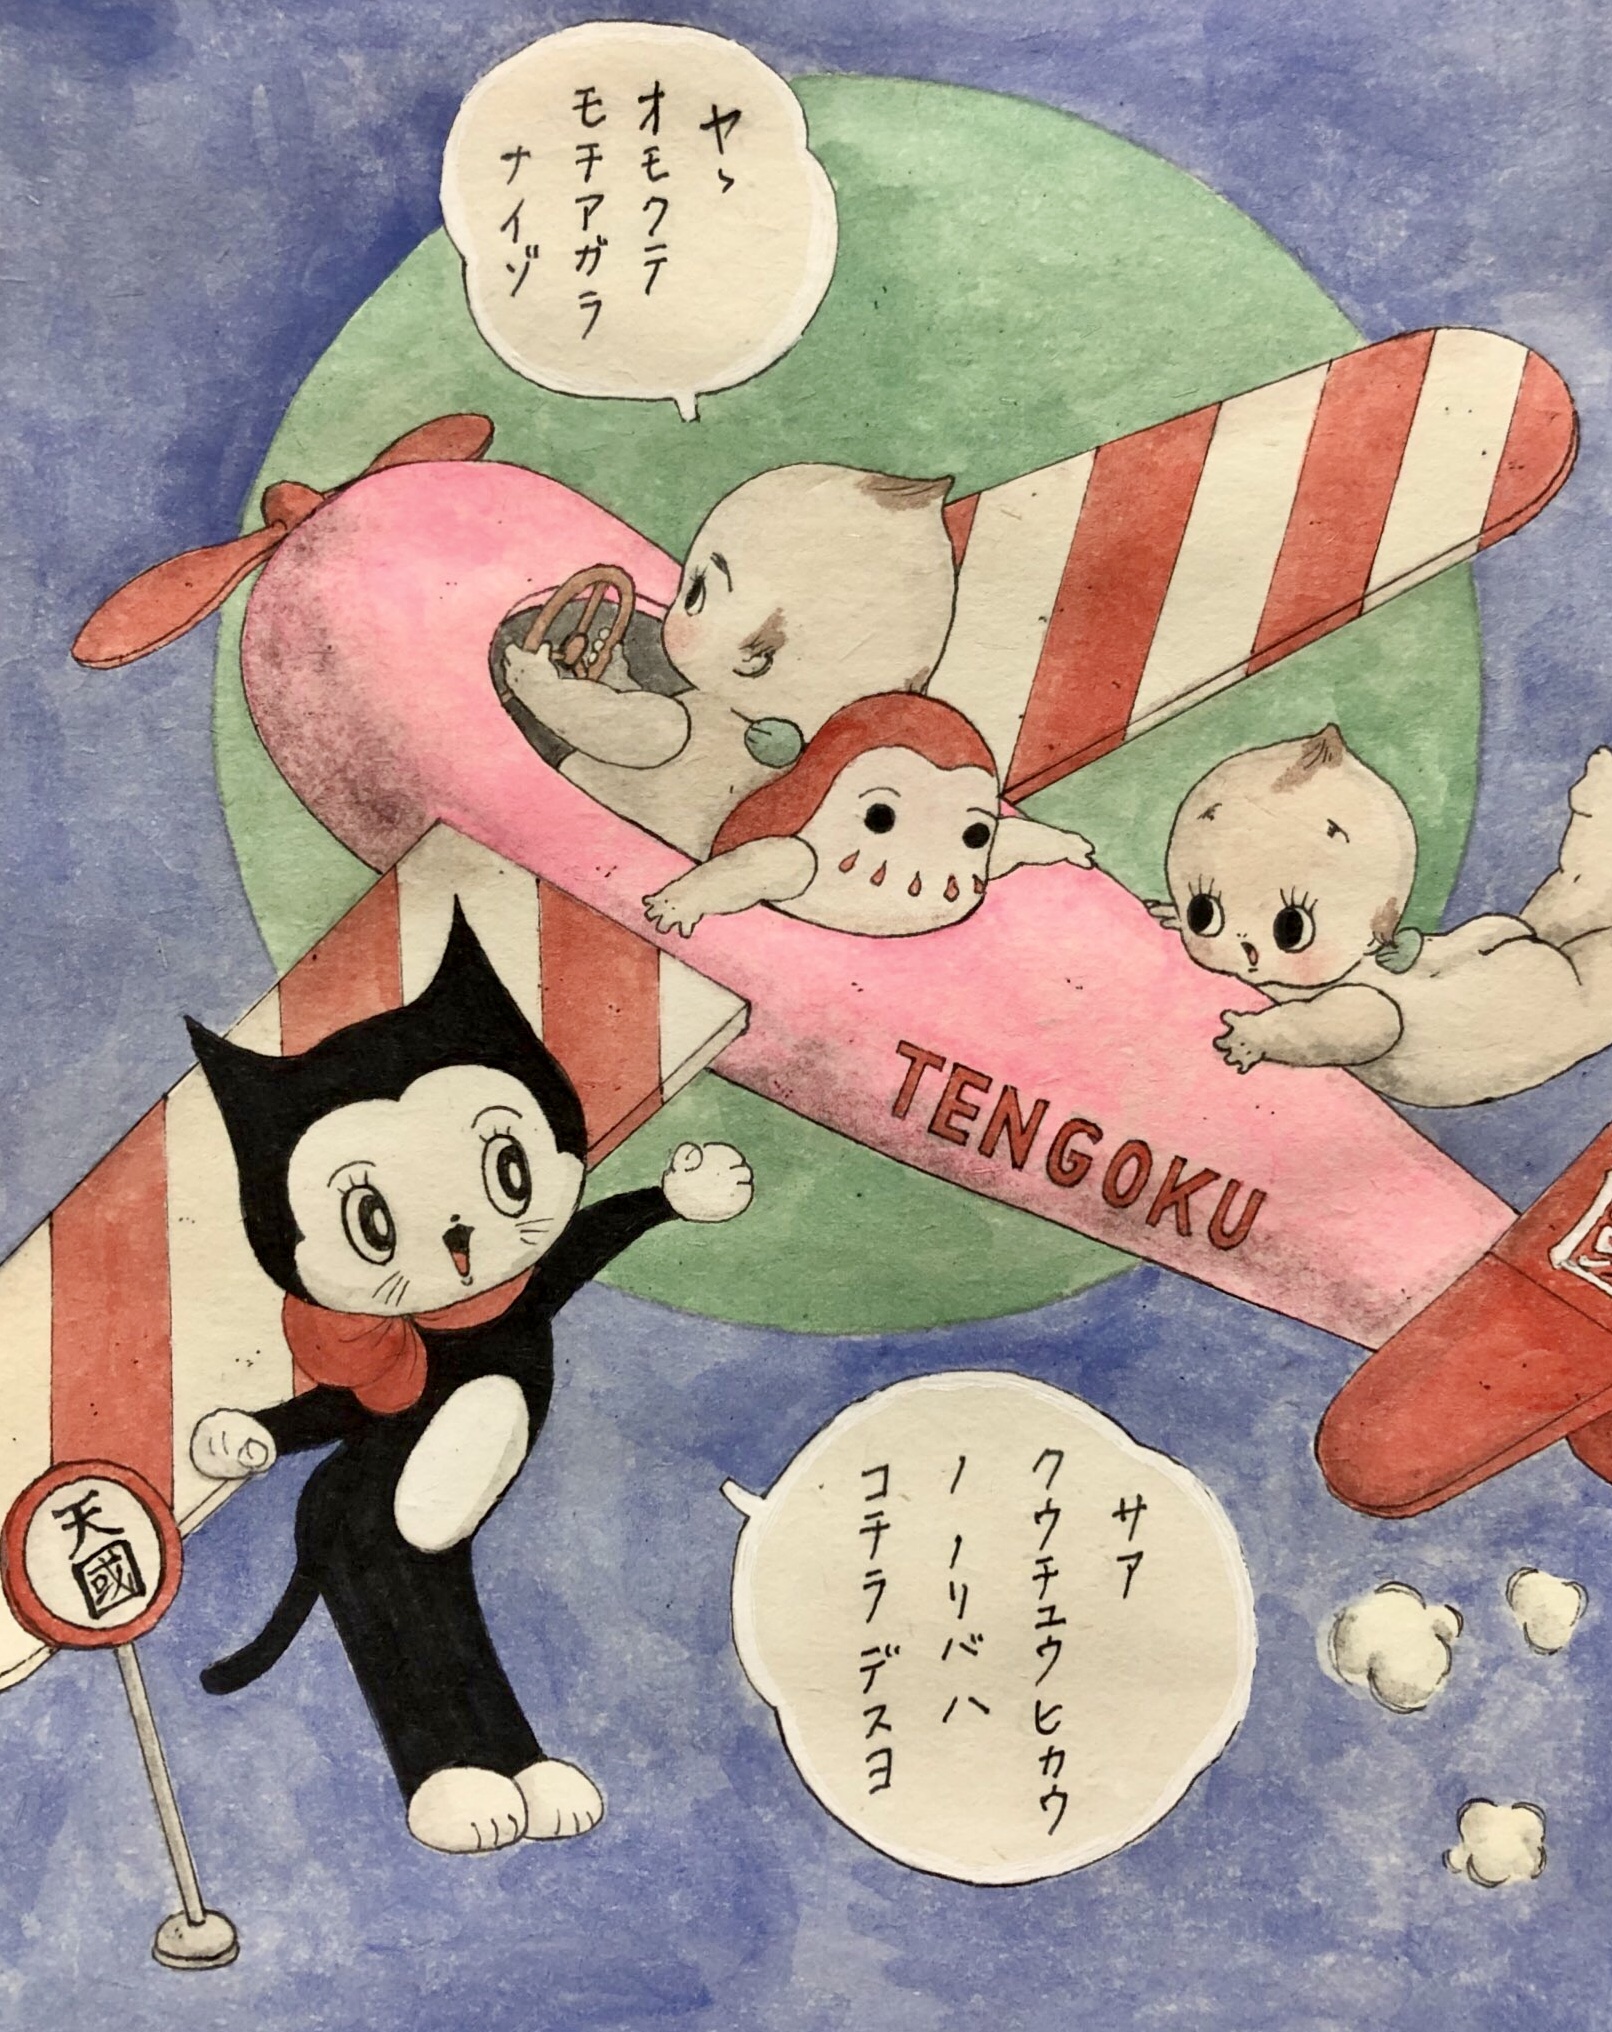 ヤヽ
オモクテ
モチアガラ
ナイゾ
TENGOKU
天國
サア
クウチユウヒカウ
ノノリバハ
コチラデスヨ